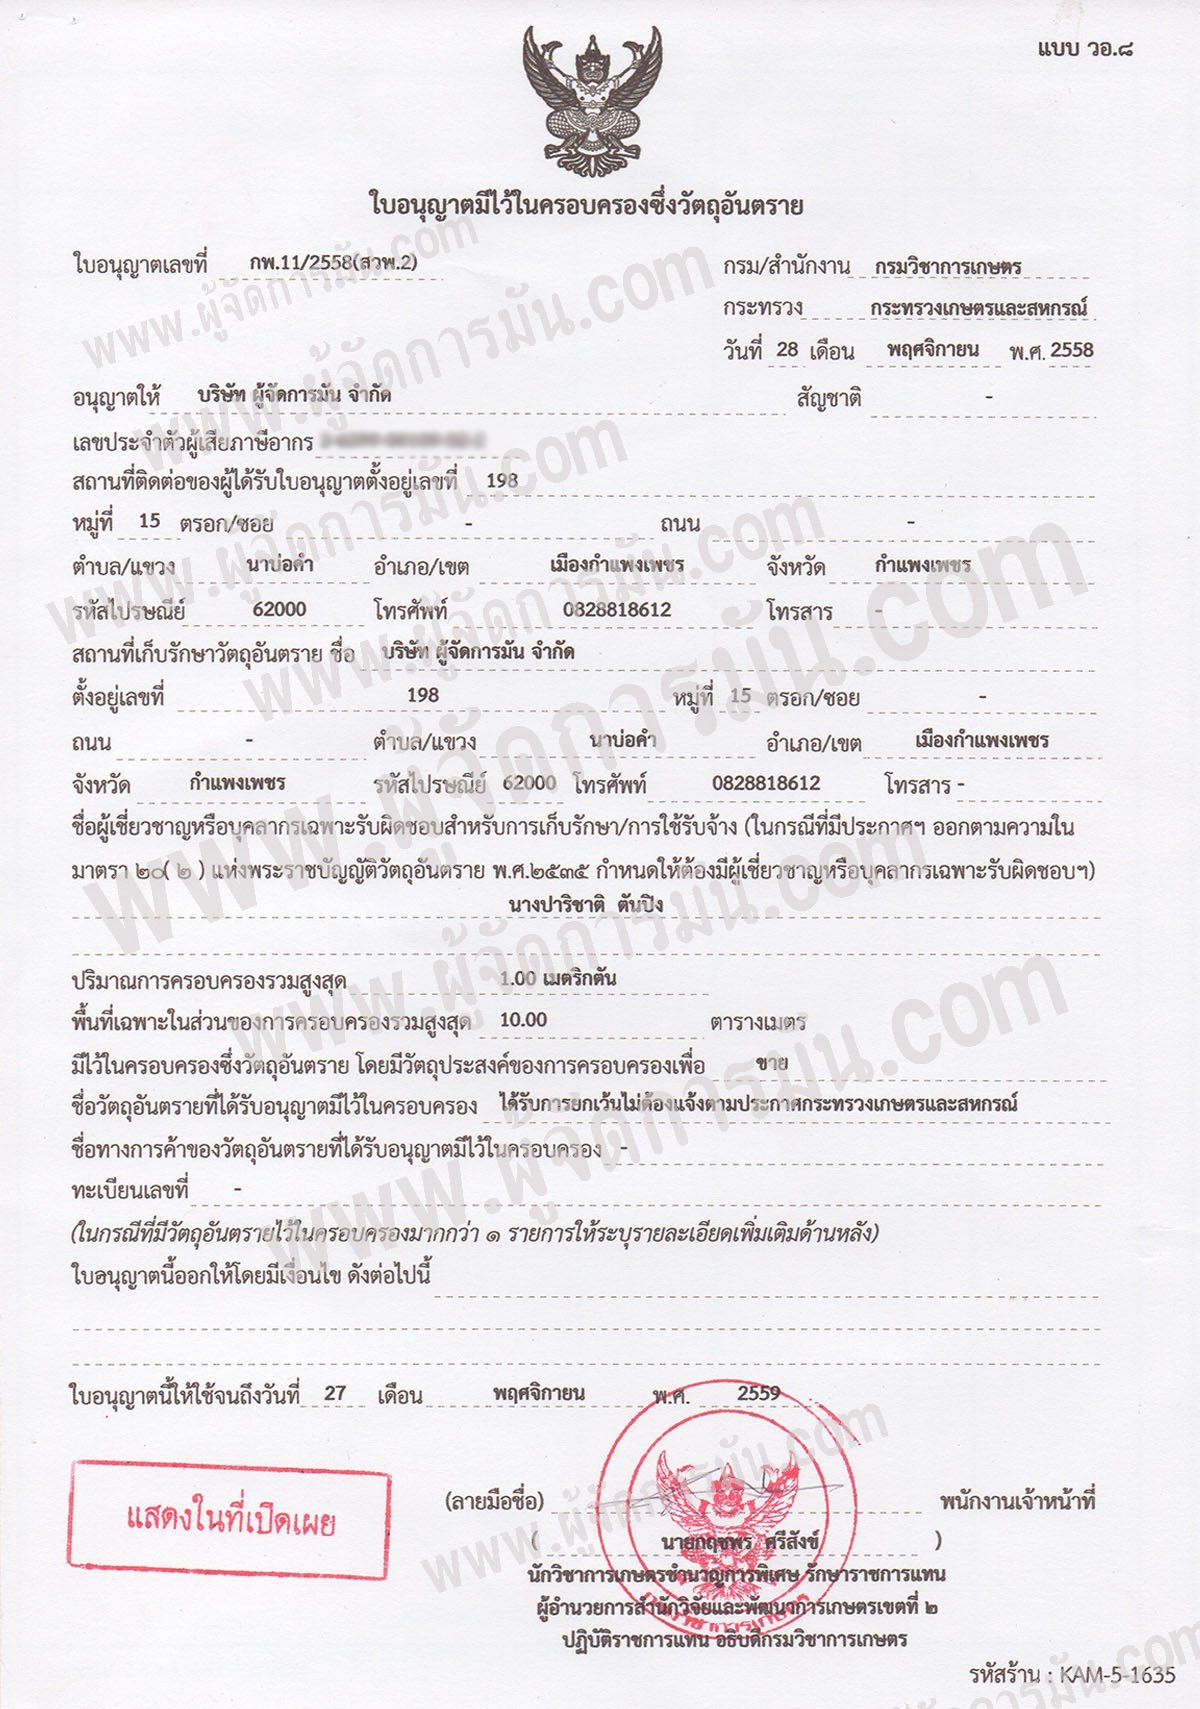 แบบ วอ.๘
ใบอนุญาตมีไว้ในครอบครองซึ่งวัตถุอันตราย
ใบอนุญาตเลขที่ กพ.11/2558(สวพ.2)
กรม/สำนักงาน กรมวิชาการเกษตร
กระทรวง กระทรวงเกษตรและสหกรณ์
วันที่ 28 เดือน พฤศจิกายน พ.ศ. 2558
อนุญาตให้ บริษัท ผู้จัดการมัน จำกัด สัญชาติ -
เลขประจำตัวผู้เสียภาษีอากร
สถานที่ติดต่อของผู้ได้รับใบอนุญาตตั้งอยู่เลขที่ 198
หมู่ที่ 15 ตรอก/ซอย - ถนน -
ตำบล/แขวง นาบ่อคำ อำเภอ/เขต เมืองกำแพงเพชร จังหวัด กำแพงเพชร
รหัสไปรษณีย์ 62000 โทรศัพท์ 0828818612 โทรสาร -
สถานที่เก็บรักษาวัตถุอันตราย ชื่อ บริษัท ผู้จัดการมัน จำกัด
ตั้งอยู่เลขที่ 198 หมู่ที่ 15 ตรอก/ซอย -
ถนน - ตำบล/แขวง นาบ่อคำ อำเภอ/เขต เมืองกำแพงเพชร
จังหวัด กำแพงเพชร รหัสไปรษณีย์ 62000 โทรศัพท์ 0828818612 โทรสาร -
ชื่อผู้เชี่ยวชาญหรือบุคลากรเฉพาะรับผิดชอบสำหรับการเก็บรักษา/การใช้รับจ้าง (ในกรณีที่มีประกาศฯ ออกตามความใน
มาตรา ๒๐( ๒ ) แห่งพระราชบัญญัติวัตถุอันตราย พ.ศ.๒๕๓๕ กำหนดให้ต้องมีผู้เชี่ยวชาญหรือบุคลากรเฉพาะรับผิดชอบฯ)
นางปาริชาติ ตันปิง
ปริมาณการครอบครองรวมสูงสุด 1.00 เมตริกตัน
พื้นที่เฉพาะในส่วนของการครอบครองรวมสูงสุด 10.00 ตารางเมตร
มีไว้ในครอบครองซึ่งวัตถุอันตราย โดยมีวัตถุประสงค์ของการครอบครองเพื่อ ขาย
ชื่อวัตถุอันตรายที่ได้รับอนุญาตมีไว้ในครอบครอง ได้รับการยกเว้นไม่ต้องแจ้งตามประกาศกระทรวงเกษตรและสหกรณ์
ชื่อทางการค้าของวัตถุอันตรายที่ได้รับอนุญาตมีไว้ในครอบครอง -
ทะเบียนเลขที่ -
(ในกรณีที่มีวัตถุอันตรายไว้ในครอบครองมากกว่า ๑ รายการให้ระบุรายละเอียดเพิ่มเติมด้านหลัง)
ใบอนุญาตนี้ออกให้โดยมีเงื่อนไข ดังต่อไปนี้
ใบอนุญาตนี้ให้ใช้จนถึงวันที่ 27 เดือน พฤศจิกายน พ.ศ. 2559
แสดงในที่เปิดเผย
(ลายมือชื่อ) พนักงานเจ้าหน้าที่
( นายกฤชพร ศรีสังข์ )
นักวิชาการเกษตรชำนาญการพิเศษ รักษาราชการแทน
ผู้อำนวยการสำนักวิจัยและพัฒนาการเกษตรเขตที่ ๒
ปฏิบัติราชการแทน อธิบดีกรมวิชาการเกษตร
กรมวิชาการเกษตร
รหัสร้าน : KAM-5-1635
www.ผู้จัดการมัน.com
www.ผู้จัดการมัน.com
www.ผู้จัดการมัน.com
www.ผู้จัดการมัน.com
www.ผู้จัดการมัน.com
www.ผู้จัดการมัน.com
www.ผู้จัดการมัน.com
www.ผู้จัดการมัน.com
www.ผู้จัดการมัน.com